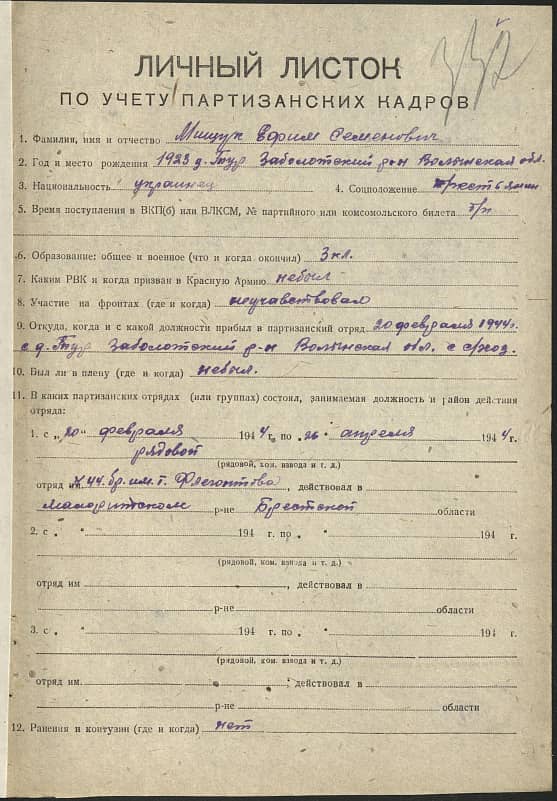 332
ЛИЧНЫЙ ЛИСТОК
ПО УЧЕТУ ПАРТИЗАНСКИХ КАДРОВ
1. Фамилия, имя и отчество Мищук Ефим Семенович
2. Год и место рождения 1923 д. Тур Заболотский р-н Волынская обл.
3. Национальность украинец 4. Соцположение крестьянин
5. Время поступления в ВКП(б) или ВЛКСМ, № партийного или комсомольского билета б/п
6. Образование: общее и военное (что и когда окончил) 3 кл.
7. Каким РВК и когда призван в Красную Армию небыл
8. Участие на фронтах (где и когда) неучавствовал
9. Откуда, когда и с какой должности прибыл в партизанский отряд. 20 февраля 1944 г.
с д. Тур Заболотский р-н Волынская обл. с с/хоз.
10. Был ли в плену (где и когда) небыл.
11. В каких партизанских отрядах (или группах) состоял, занимаемая должность и район действия
отряда:
1. с „20" февраля 1944 г. по „26" апреля 1944 г.
рядовой
(рядовой, ком. взвода и т. д.)
отряд им. бр. им. т. Флегонтова, действовал в
Малоритском р-не Брестской области
2. с „ " 194 г. по „ " 194 г.
(рядовой, ком. взвода и т. д.)
отряд им , действовал в
р-не области
3. с „ " 194 г. по „ " 194 г.
(рядовой, ком. взвода и т. д.)
отряд им. , действовал в
р-не области
12. Ранения и контузии (где и когда) нет